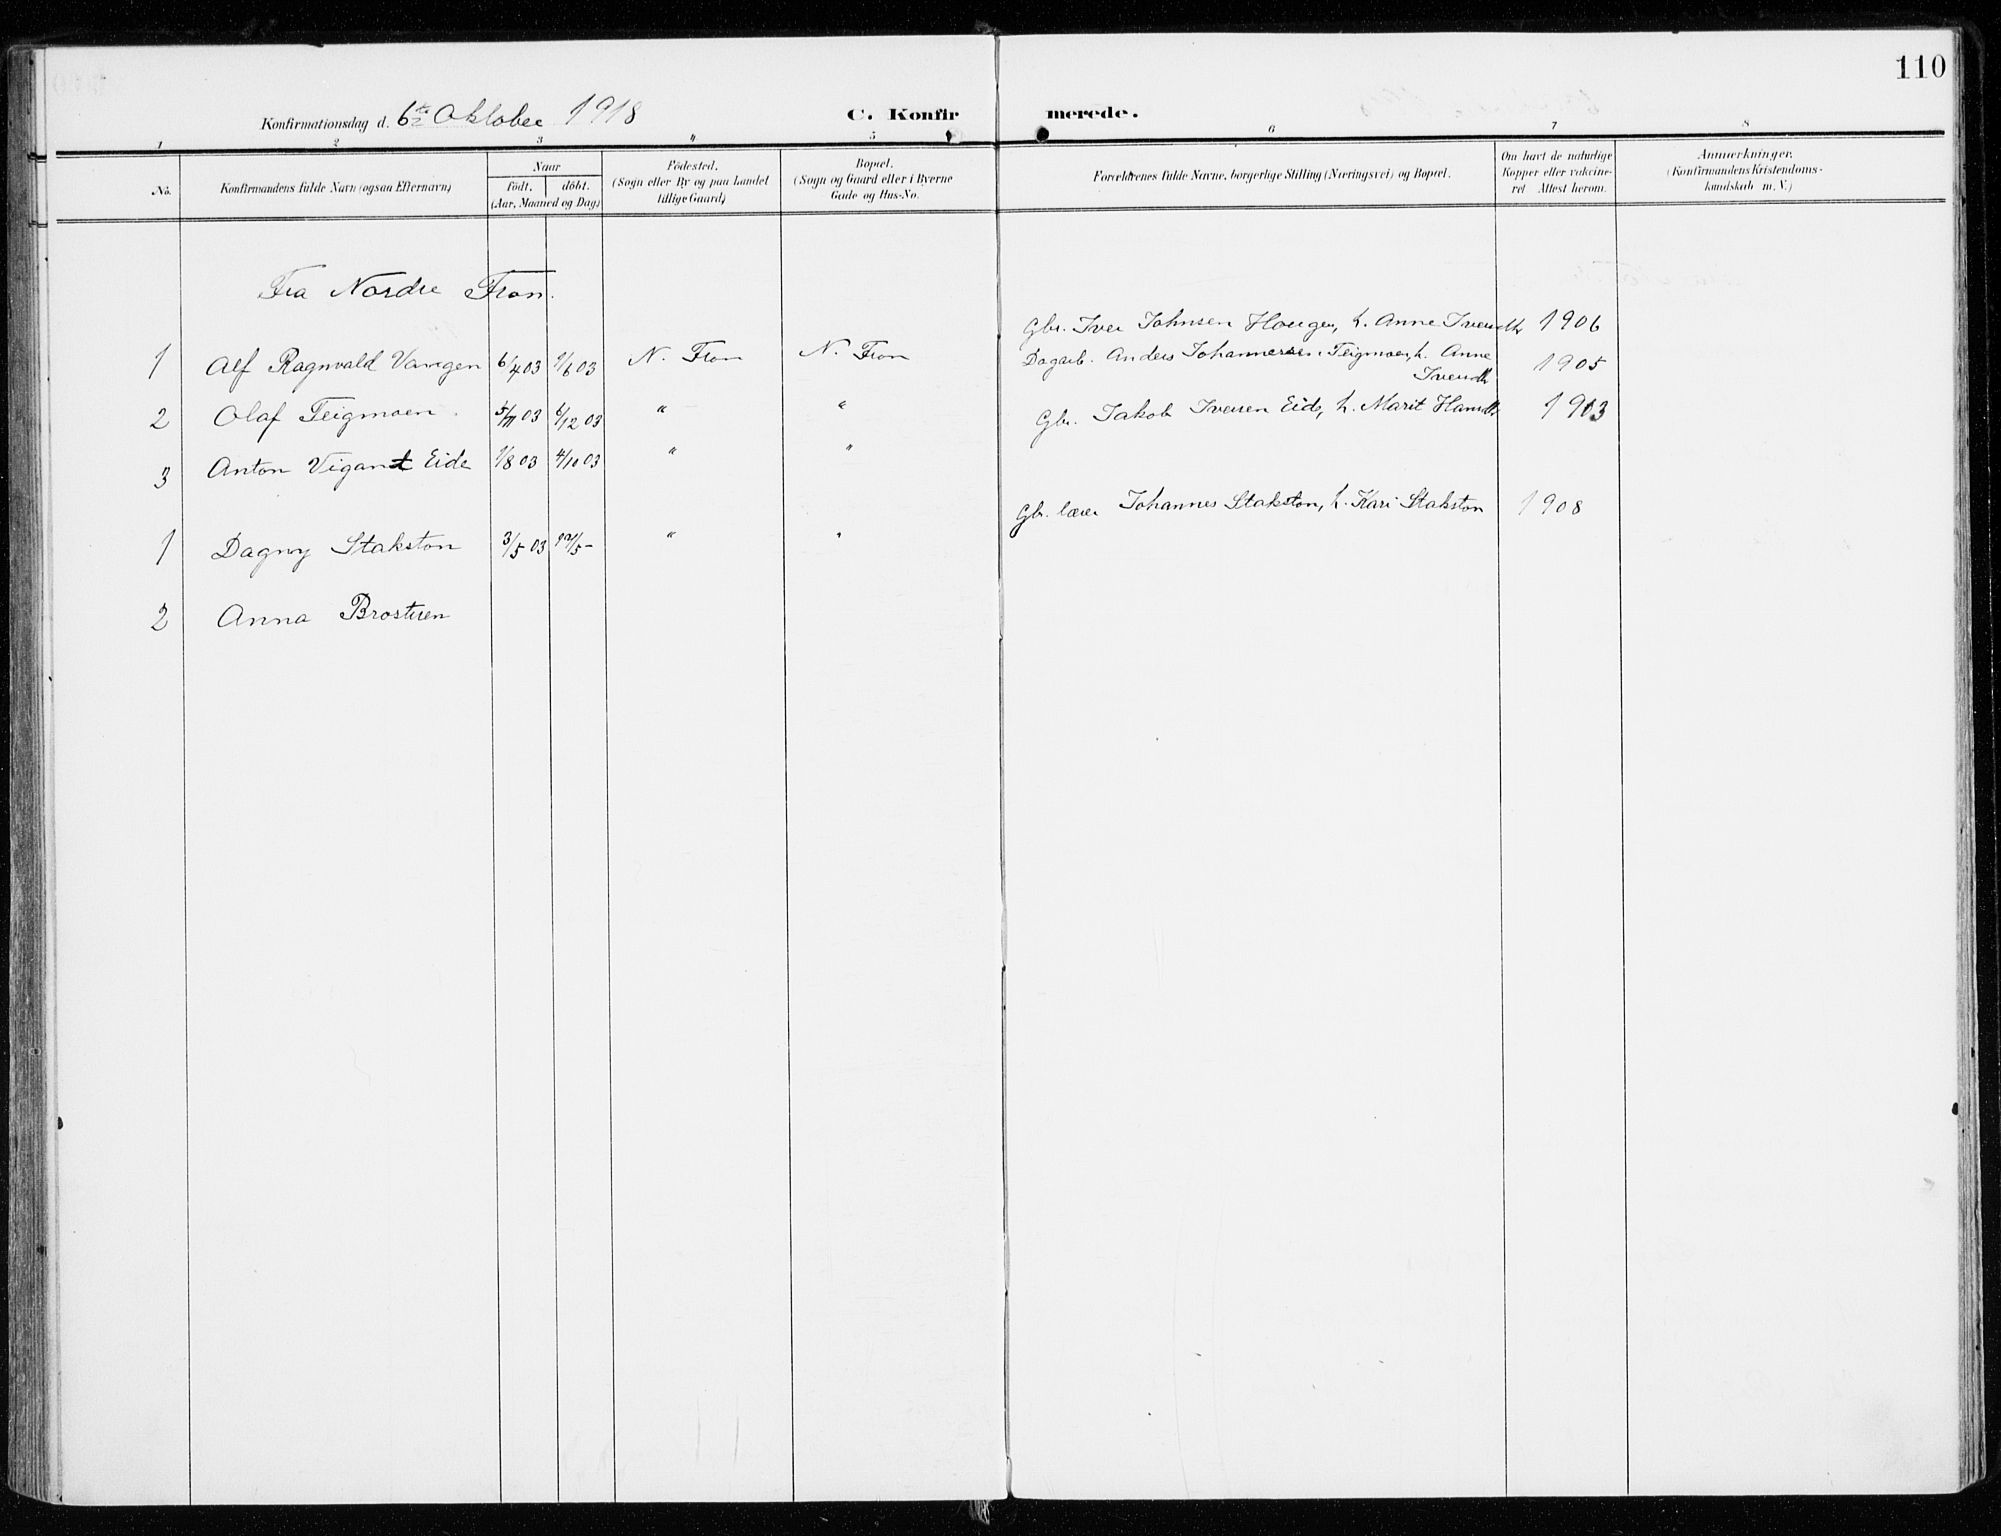 110
Konfirmationsdag d. 6te Oktober 1918 C. Konfirmerede.
1 2 3 4 5 6 7 8
No. Konfirmandens fulde Navn (ogsaa Efternavn) Naar født. døbt. (Aar, Maaned og Dag) Fødested. (Sogn eller By og paa Landet tillige Gaard) Bopæl. (Sogn og Gaard eller i Byerne Gade og Hus-No. Forældrenes fulde Navne, borgerlige Stilling (Næringsvei) og Bopæl. Om havt de naturlige Kopper eller vakcineret Attest herom. Anmærkninger. (Konfirmandens Kristendomskundskab m. V.)
Fra Nordre Fron.
1 Alf Ragnvald Vangen 6/4 03 1/6 03 N. Fron N. Fron Gbr. Iver Johnsen Haugen, h. Anne Iversdtr 1906
2 Olaf Teigmoen. 5/11 03 6/12 03 " " Dagarb. Anders Johannessen Teigmoen, h. Anne Iversdtr 1905
3 Anton Vigant Eide 1/8 03 4/10 03 " " Gbr. Jakob Iversen Eide, h. Marit Hansdtr 1913
1 Dagny Stakston 3/5 03 17/5 - " " Gbr. lærer Johannes Stakston, h. Kari Stakston 1908
2 Anna Brostuen